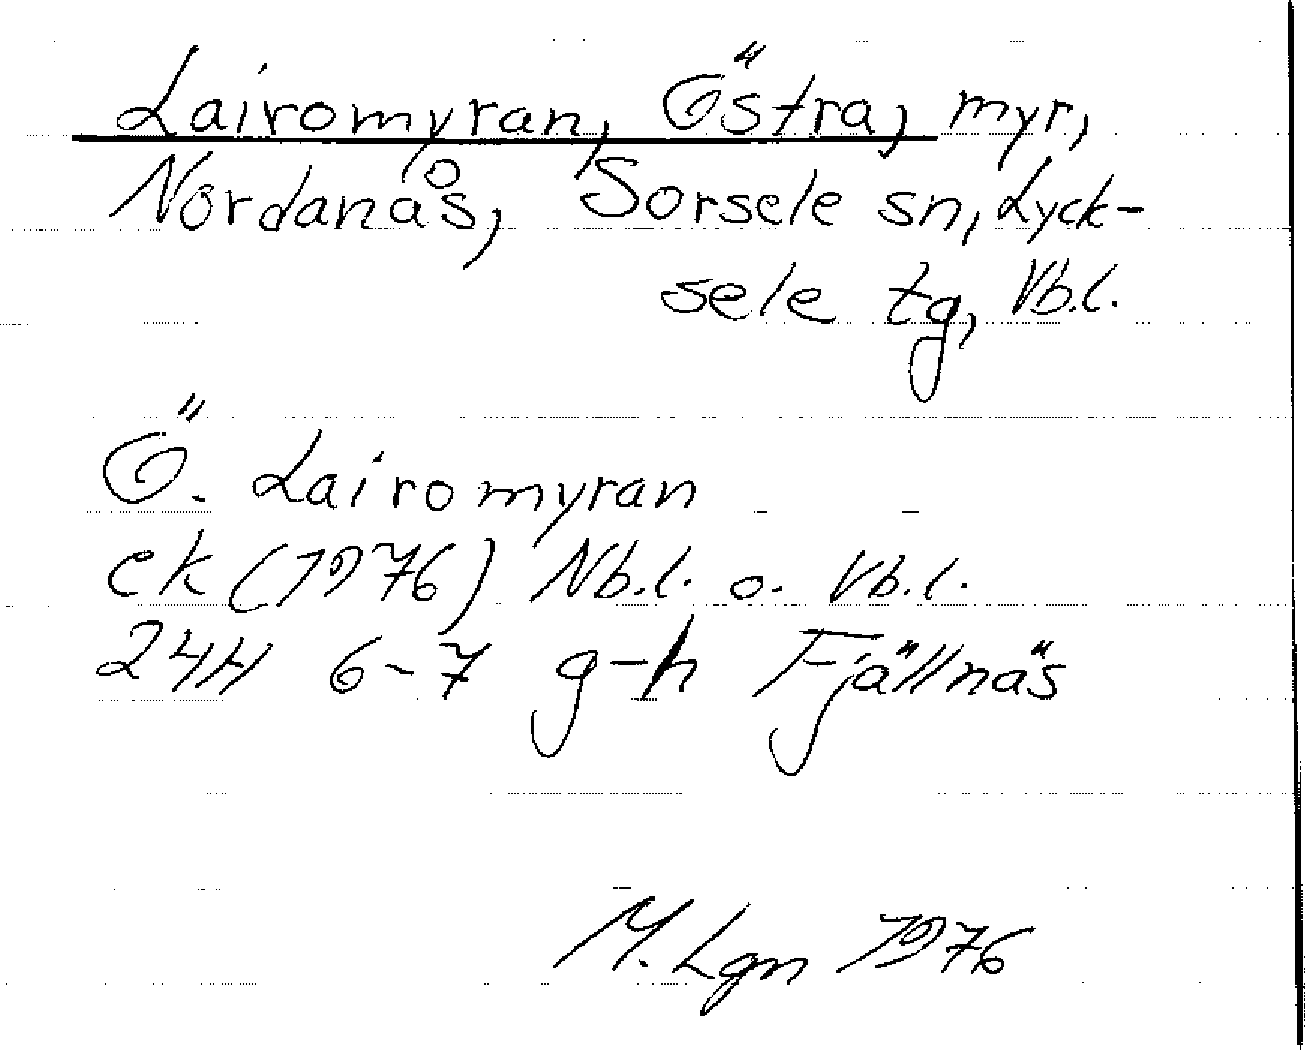 Lairomyran, Östra, myr,
Nordanås, Sorsele sn, Lyck-
sele tg, Vb.l.
Ö. Lairomyran
ek (1976) Nb.l. o. Vb.l.
24H 6-7 g-h Fjällnäs
M. Lgn 1976